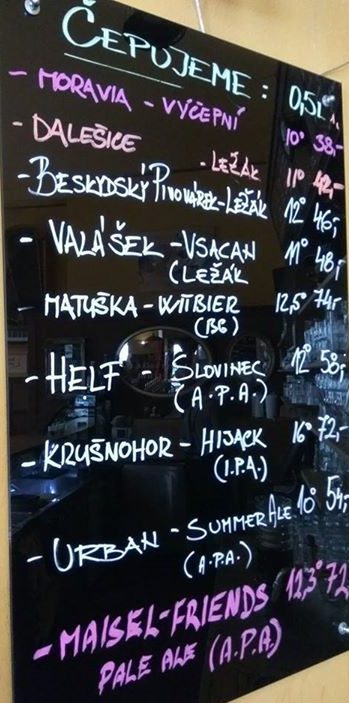 ČEPUJEME: 0,5L
- MORAVIA - VÝČEPNÍ 10° 38,-
- DALEŠICE - LEŽÁK 11° 42,-
- BESKYDSKÝ PIVOVÁREK-LEŽÁK 12° 46,-
- VALÁŠEK - VSACAN 11° 48,-
(LEŽÁK
- MATUŠKA - WITBIER 12,5° 74,-
(BG)
- HELF - SLOVINEC 12° 58,-
(A.P.A.)
- KRUŠNOHOR - HIJACK 16° 72,-
(I.P.A.)
- URBAN - SUMMER ALE 10° 54,-
(A.P.A.)
- MAISEL-FRIENDS 12,3° 72
PALE ALE (A.P.A.)